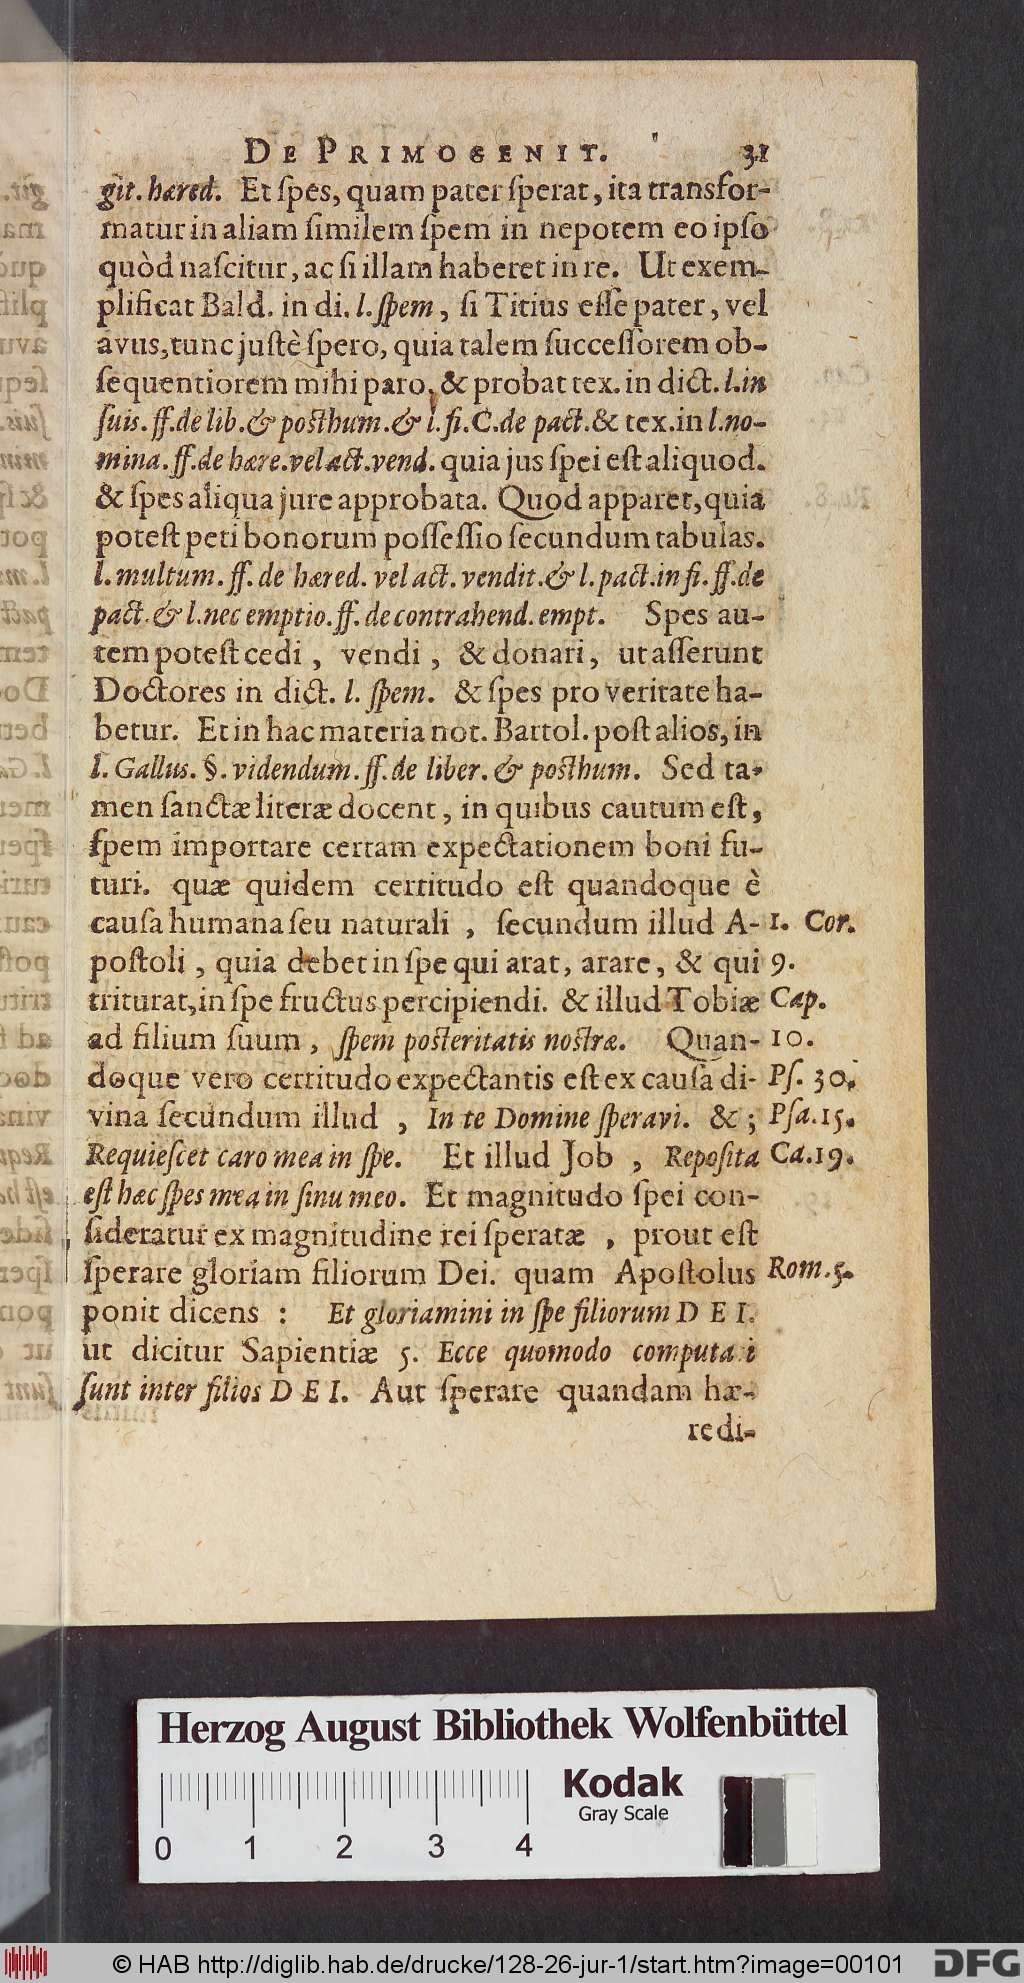 DE PRIMOGENIT. 31
git. hæred. Et ſpes, quam pater ſperat, ita transfor-
matur in aliam ſimilem ſpem in nepotem eo ipſo
quòd naſcitur, ac ſi illam haberet in re. Ut exem-
plificat Bald. in di. l. ſpem, ſi Titius eſſe pater, vel
avus, tunc juſtè ſpero, quia talem ſucceſſorem ob-
ſequentiorem mihi paro, & probat tex. in dict. l. in
ſuis. ff. de lib. & poſthum. & l. fi. C. de pact. & tex. in l. no-
mina. ff. de hære. vel act. vend. quia jus ſpei eſt aliquod.
& ſpes aliqua jure approbata. Quod apparet, quia
poteſt peti bonorum poſſeſſio ſecundum tabulas.
l. multum. ff. de hæred. vel act. vendit. & l. pact. in fi. ff. de
pact. & l. nec emptio. ff. de contrahend. empt. Spes au-
tem poteſt cedi, vendi, & donari, ut aſſerunt
Doctores in dict. l. ſpem. & ſpes pro veritate ha-
betur. Et in hac materia not. Bartol. poſt alios, in
l. Gallus. §. videndum. ff. de liber. & poſthum. Sed ta-
men ſanctæ literæ docent, in quibus cautum eſt,
ſpem importare certam expectationem boni fu-
turi. quæ quidem certitudo eſt quandoque è
cauſa humana ſeu naturali, ſecundum illud A- 1. Cor.
poſtoli, quia debet in ſpe qui arat, arare, & qui 9.
triturat, in ſpe fructus percipiendi. & illud Tobiæ Cap.
ad filium ſuum, ſpem poſteritatis noſtræ. Quan- 10.
doque vero certitudo expectantis eſt ex cauſa di- Pſ. 30.
vina ſecundum illud, In te Domine ſperavi. &; Pſa. 15.
Requieſcet caro mea in ſpe. Et illud Job, Repoſita Ca. 19.
eſt hæc ſpes mea in ſinu meo. Et magnitudo ſpei con-
ſideratur ex magnitudine rei ſperatæ, prout eſt
ſperare gloriam filiorum Dei. quam Apoſtolus Rom. 5.
ponit dicens: Et gloriamini in ſpe filiorum DEI.
ut dicitur Sapientiæ 5. Ecce quomodo computati
ſunt inter filios DEI. Aut ſperare quandam hæ-
redi-
Herzog August Bibliothek Wolfenbüttel
Kodak
Gray Scale
0 1 2 3 4
© HAB http://diglib.hab.de/drucke/128-26-jur-1/start.htm?image=00101
DFG